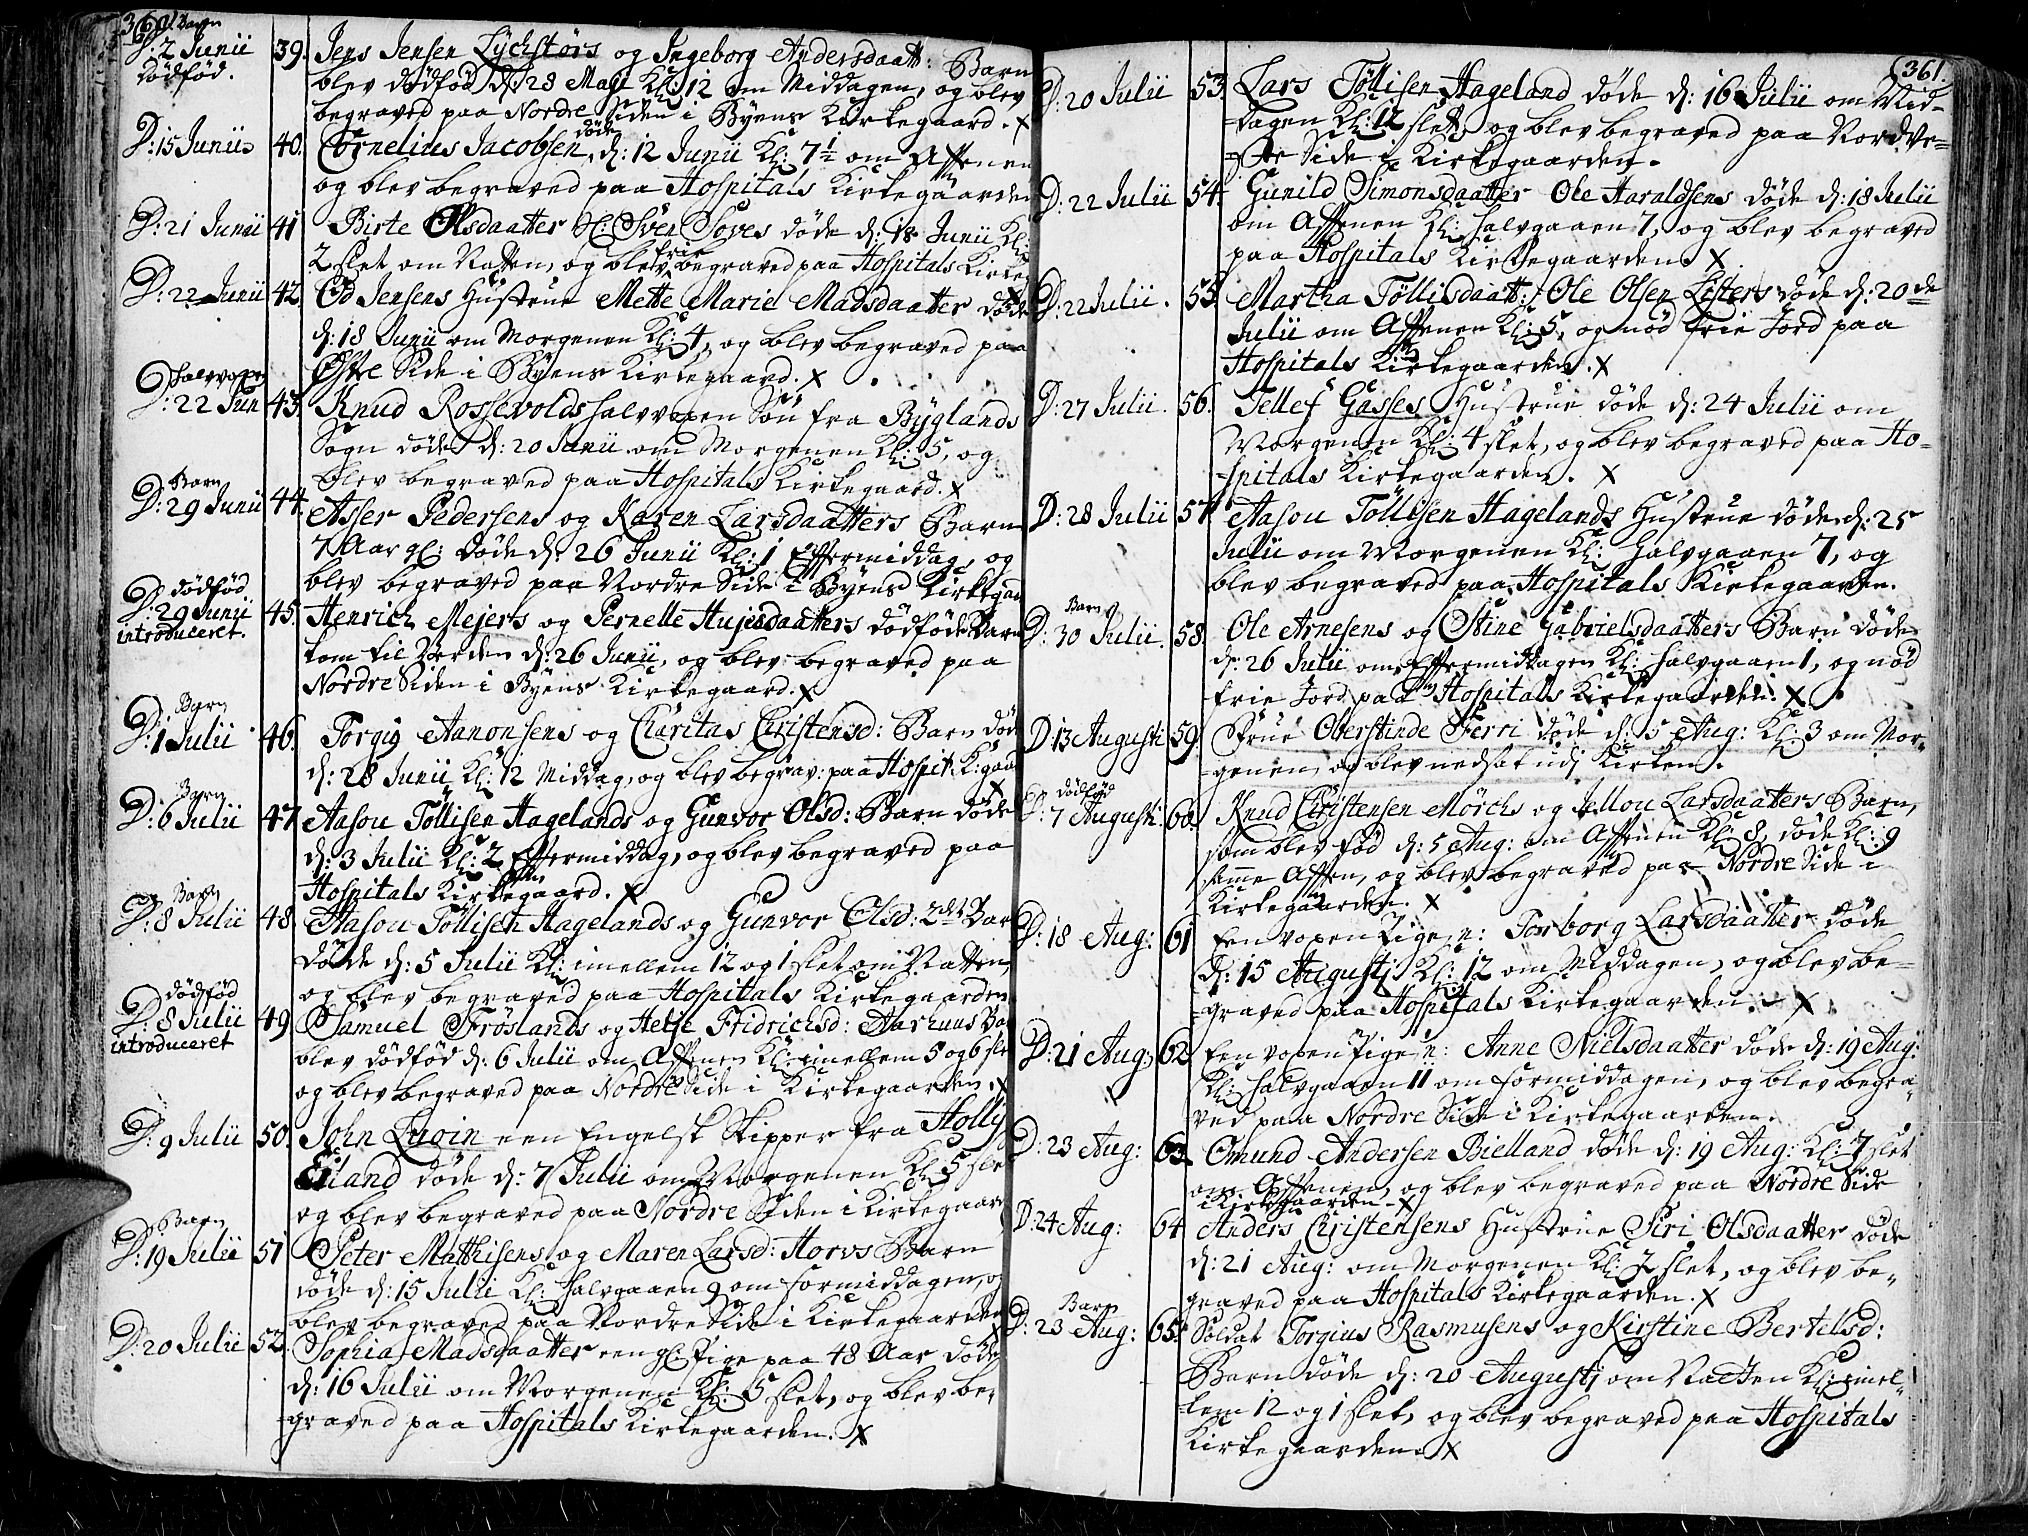 360.
Barn
D: 2 Junii 39. Jens Jensen Lÿchstørs og Ingeborg Andersdaatt: Barn
dødfød. blev dødfød d: 28 Maji Kl: 12 om Middagen, og blev
begraved paa Nordre Siden i Byens Kirkegaard. X
D: 15 Junii 40. Cornelius Jacobsen døde d: 12 Junii Kl: 7½ om Afftenen
og blev begraved paa Hospitals Kirkegaarden
D: 21 Junii 41 Birte Olsdaatter Sl: Sver Soves døde d: 18 Junii Kl:
2 slet om Natten, og blev frie begraved paa Hospitals Kirkeg
D: 22 Junii 42. Od Jensens Hustrue Mette Marie Madsdaatter døde
d: 18 Junii om Morgenen Kl: 4, og blev begraved paa
Østre Side i Byens Kirkegaard. X
halvvoxen
D: 22 Jun 43. Knud Rossevolds halvvoxen Søn fra Bÿglands
Sogn døde d: 20 Junii om Morgenen Kl: 5, og
blev begraved paa Hospitals Kirkegaard. X
Barn
D: 29 Junii 44. Asser Pedersens og Karen Larsdaatters Barn
7 Aar gl: døde d: 26 Junii Kl: 1 Efftermiddag, og
blev begraved paa Nordre Side i Byens Kirkegaa
dødfød
D: 29 Junii 45. Henrich Mejers og Pernelle Hujesdaatters dødføde Barn
introduceret. kom til Verden d: 26 Junii, og blev begraved paa
Nordre Siden i Byens Kirkegaard. X
Barn
D: 1 Julii 46. Torgig Aanonsens og Charitas Christensd: Barn døde
d: 28 Junii Kl: 12 Middag, og blev begrav: paa Hospit. K:gaa
Barn
D: 6 Julii 47 Aasou Töllisen Hagelands og Gunvor Olsd: Barn døde
d: 3 Julii Kl: 2 Efftermiddag, og blev begraved paa
Hospitals Kirkegaard. X
Barn
D: 8 Julii 48. Aasou Töllisen Hagelands og Gunvor Olsd: 2det Bar
døde d: 5 Julii Kl: imellem 12 og 1 slet om Natten,
og blev begraved paa Hospitals Kirkegaarden
dødfød
D: 8 Julii 49. Samuel Frøslands og Helje Fridrichsd: Aarhuus Ba
introduceret blev dødfød d: 6 Julii om Afftenen Kl: imellem 5 og 6 sle
og blev begraved paa Nordre Side i Kirkegaarden. X
D: 9 Julii 50. John Lugin een Engelsk Skipper fra Hollÿ
Eiland døde d: 7 Julii om Morgenen Kl: 5 slet
og blev begraved paa Nordre Siden i Kirkegaar
Barn
D: 19 Julii 51 Peter Mathisens og Maren Larsd: Horvs Barn
døde d: 15 Julii Kl: halvgaaen 9 om formiddagen, o
blev begraved paa Nordre Side i Kirkegaarden
D: 20 Julii 52. Sophia Madsdaatter een gl: Pige paa 48 Aar døde
d: 16 Julii om Morgenen Kl: 5 slet, og blev be-
graved paa Hospitals Kirkegaarden. X
361.
D: 20 Julii 53. Lars Töllisen Hageland døde d: 16 Julii om Mid-
dagen Kl: 12 slet, og blev begraved paa NordVe-
ste Side i Kirkegaarden.
D: 22 Julii 54. Gunild Simonsdaatter Ole Haraldsens døde d: 18 Julii
om Afftenen Kl: halvgaaen 7, og blev begraved
paa Hospitals Kirkegaarden X
D: 22 Julii. 55. Martha Töllisdaatt: Ole Olsen Listers døde d: 20de
Julii om Afftenen Kl: 5, og nød frie Jord paa
Hospitals Kirkegaarden. X
D: 27 Julii. 56. Tellef Gasses Hustrue døde d: 24 Julii om
Morgenen Kl: 4 slet, og blev begraved paa Ho-
spitals Kirkegaarden. X
D: 28 Julii 57. Aasou Töllisen Hagelands Hustrue døde d: 25
Julii om Morgenen Kl: halvgaaen 7, og
blev begraved paa Hospitals Kirkegaarden.
Barn
D: 30 Julii. 58. Ole Arnesens og Stine Gabrielsdaatters Barn døde
d: 26 Julii om Efftermiddagen Kl: halvgaaen 1, og nød
frie Jord paa Hospitals Kirkegaarden. X
D: 13 Augusti 59. Frue Oberstinde Ferri døde d: 5 Aug: Kl: 3 om Mor-
genen, og blev nedsat udj Kirken.
dødfød
D: 7 Augusti 60. Knud Christensen Mörchs og Jellou Larsdaatters Barn,
som blev fød d: 5 Aug: om Afftenen Kl: 8, døde Kl: 9
samme Afften, og blev begraved paa Nordre Side i
Kirkegaarden. X
D: 18 Aug: 61 Een voxen Pige, n: Torborg Larsdaatter døde
d: 15 Augustj Kl: 12 om Middagen, og blev be-
graved paa Hospitals Kirkegaarden. X
D: 21 Aug: 62 Een voxen Pige, n: Anne Nielsdaatter døde d: 19 Aug:
Kl: halvgaaen 11 om formiddagen, og blev begra-
ved paa Nordre Side i Kirkegaarden.
D: 23 Aug: 63. Omund Andersen Bielland døde d: 19 Aug: Kl: 7 slet
om Afftenen, og blev begraved paa Nordre Side
i Kirkegaarden. X
D: 24 Aug: 64 Anders Christensens Hustrue Siri Olsdaatter døde
d: 21 Aug: om Morgenen Kl: 7 slet, og blev be-
graved paa Hospitals Kirkegaarden. X
Barn
D: 23 Aug: 65. Soldat Torgius Rasmusens og Kirstine Bertelsd:
Barn døde d: 20 Augustj om Natten Kl: imel-
lem 12 og 1 slet, og blev begraved paa Hospitals
Kirkegaarden. X